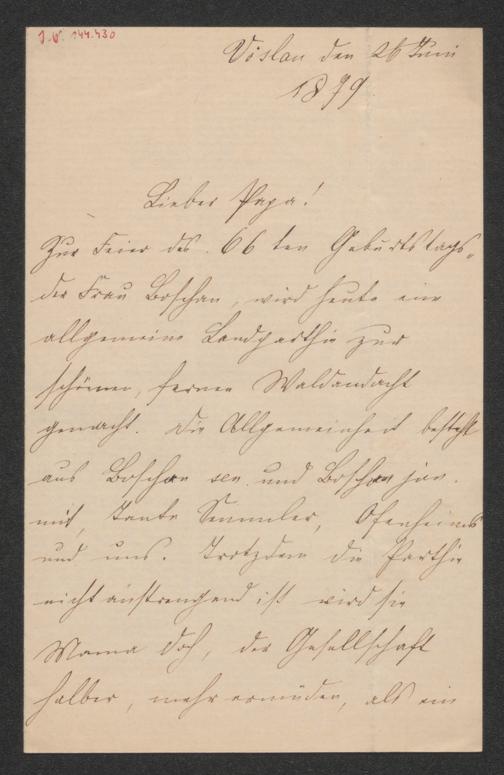 J.N. 144.430
Vöslau den 26 Juni
1879
Lieber Papa!
Zur Feier des 66ten Geburtstags
der Frau Boschan, wird heute eine
allgemeine Landparthie zur
schönen, fernen Waldandacht
gemacht. Die Allgemeinheit besteht
aus Boschan sen. und Boschan jun.
mit, Tante Semmler, Ofenheims
und uns. Trotzdem die Parthie
nicht anstrengend ist wird sie
Mama doch, der Gesellschaft
halber, mehr ermüden, als ein